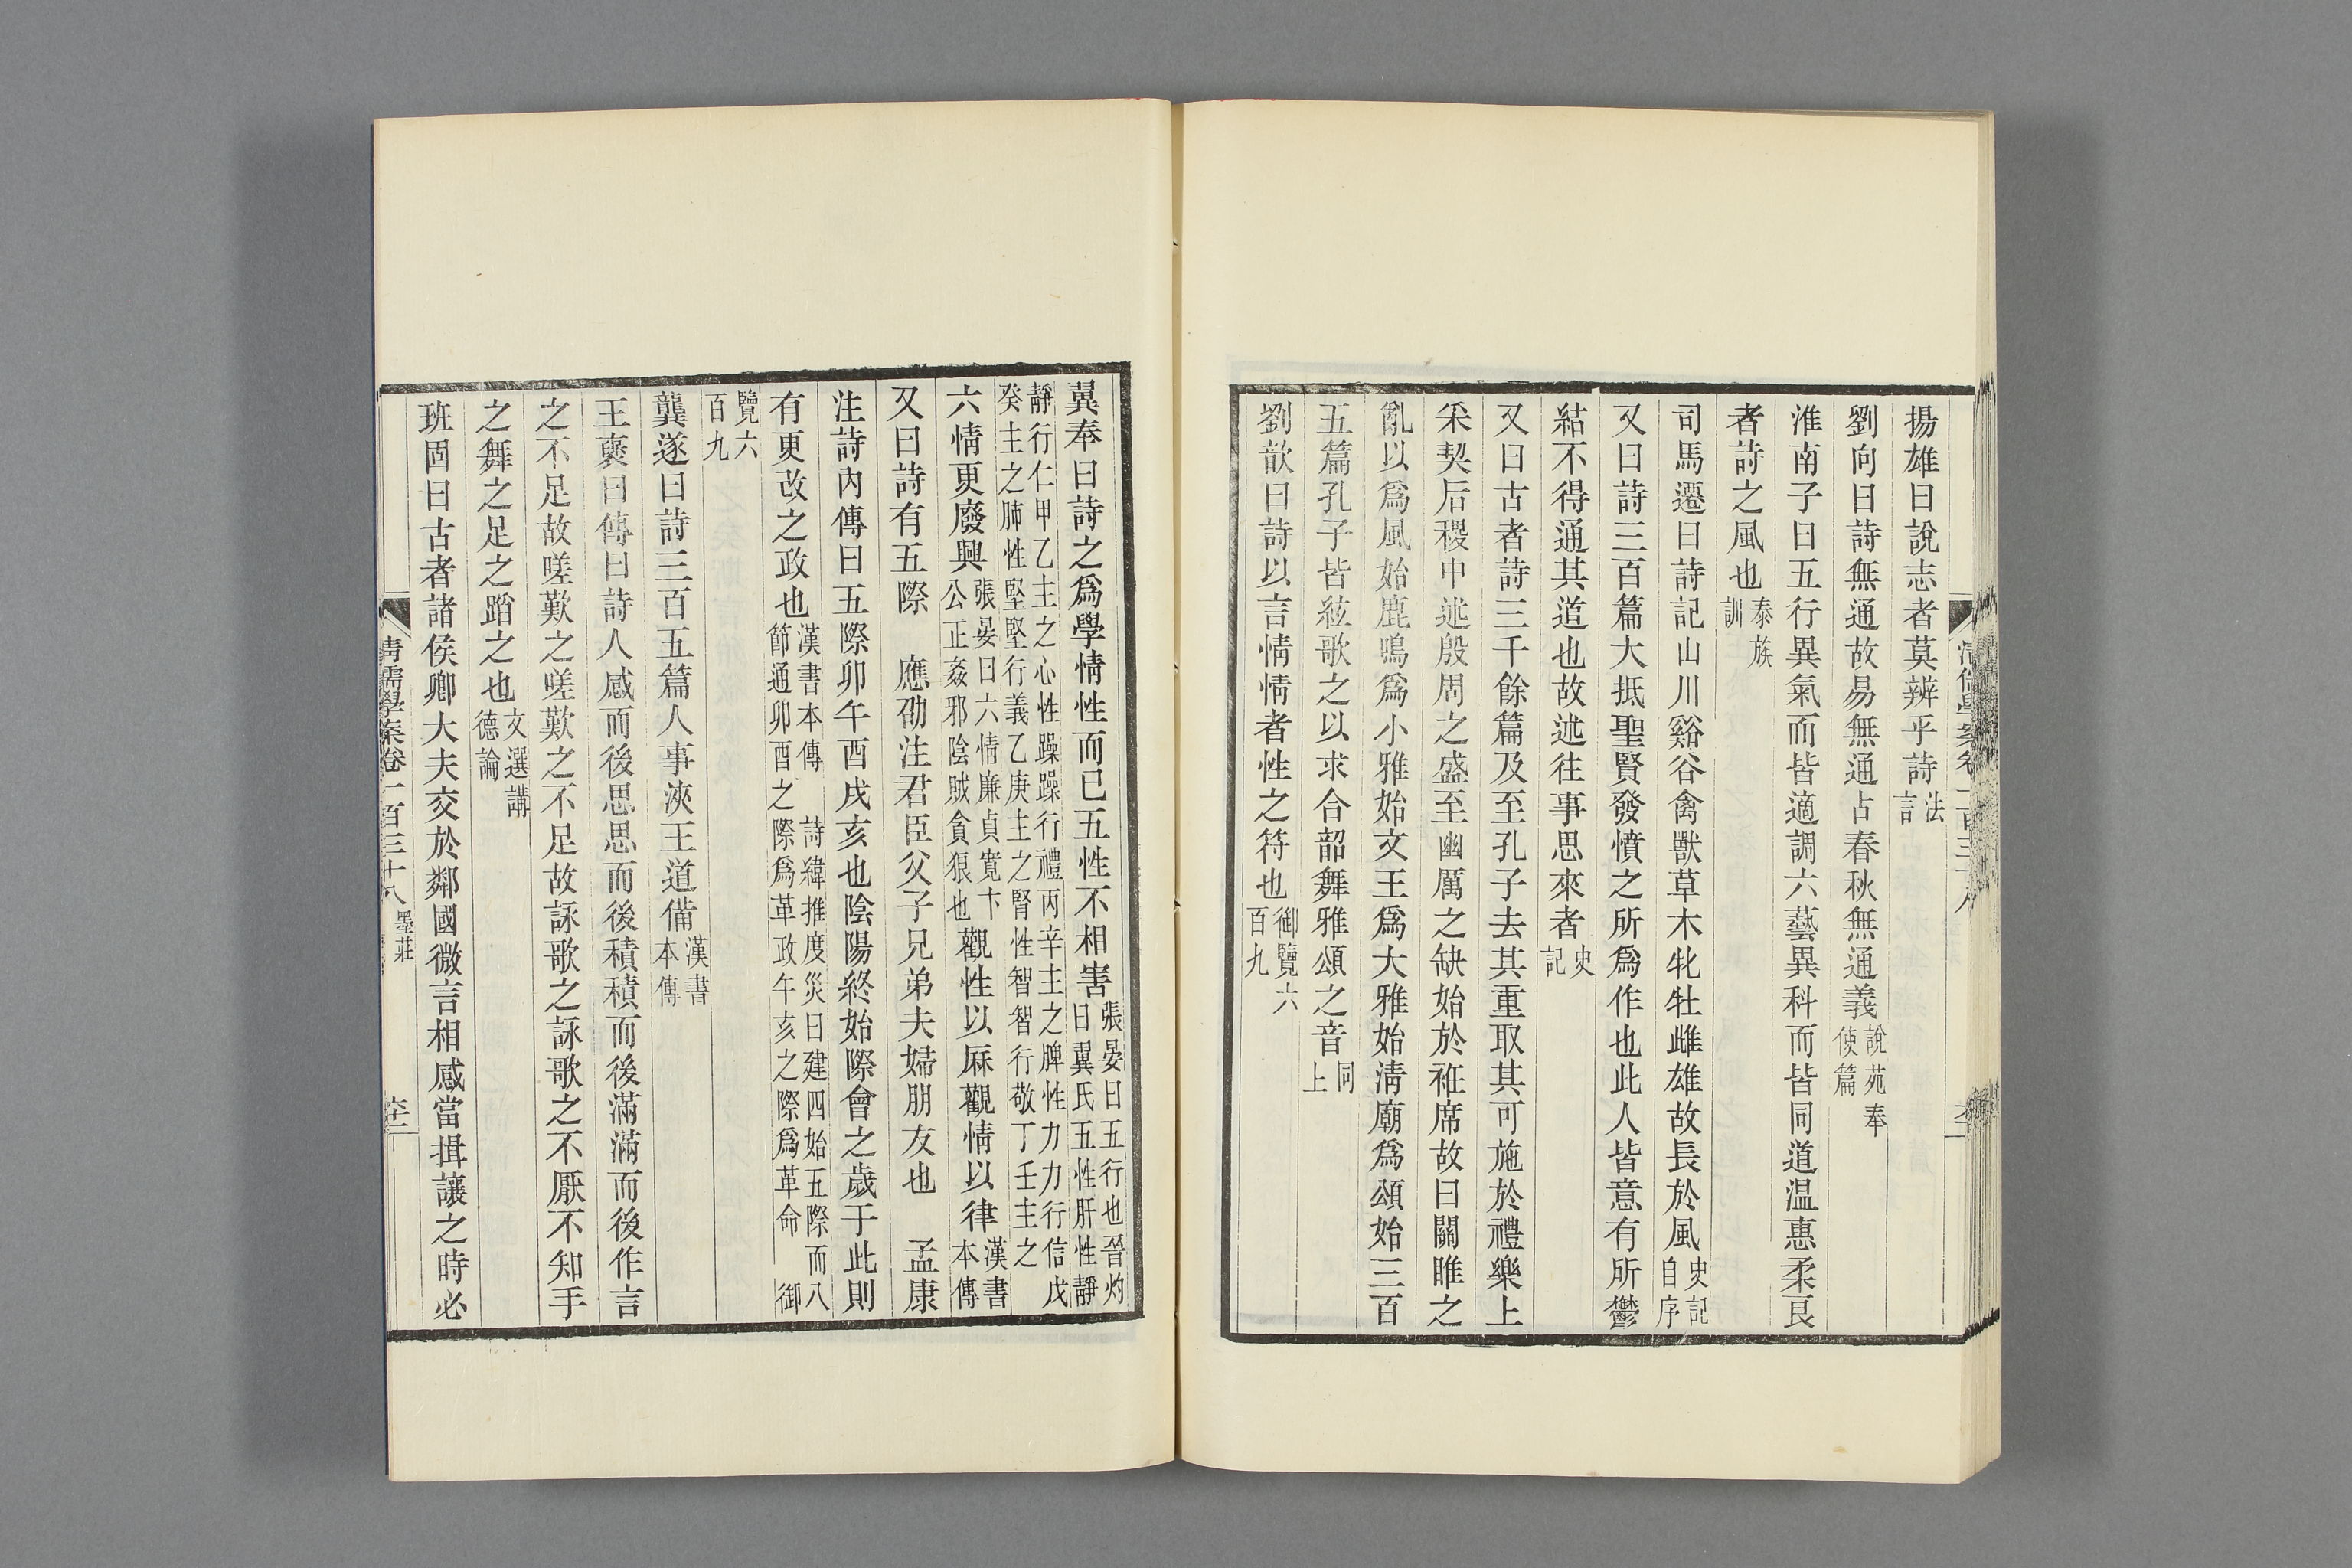 揚雄曰說志者莫辨乎詩法言
劉向曰詩無通故易無通占春秋無通義說苑奉使篇
淮南子曰五行異氣而皆適調六藝異科而皆同道温惠柔良
者詩之風也泰族訓
司馬遷曰詩記山川谿谷禽獸草木牝牡雌雄故長於風史記自序
又曰詩三百篇大抵聖賢發憤之所爲作也此人皆意有所鬱
結不得通其道也故述往事思來者史記
又曰古者詩三千餘篇及至孔子去其重取其可施於禮樂上
采契后稷中述殷周之盛至幽厲之缺始於袵席故曰關雎之
亂以爲風始鹿鳴爲小雅始文王爲大雅始淸廟爲頌始三百
五篇孔子皆絃歌之以求合韶舞雅頌之音同上
劉歆曰詩以言情情者性之符也御覽六百九
翼奉曰詩之爲學情性而已五性不相害張晏曰五行也晉灼曰翼氏五性肝性靜
靜行仁甲乙主之心性躁躁行禮丙辛主之脾性力力行信戊癸主之肺性堅堅行義乙庚主之腎性智智行敬丁壬主之
六情更廢興張晏曰六情廉貞寬卞公正姦邪陰賊貪狠也觀性以厤觀情以律漢書本傳
又曰詩有五際　應劭注君臣父子兄弟夫婦朋友也　孟康
注詩內傳曰五際卯午酉戌亥也陰陽終始際會之歲于此則
有更改之政也漢書本傳　詩緯推度災曰建四始五際而八節通卯酉之際爲革政午亥之際爲革命　御
覽六百九
龔遂曰詩三百五篇人事浹王道備漢書本傳
王襃曰傳曰詩人感而後思思而後積積而後滿滿而後作言
之不足故嗟歎之嗟歎之不足故詠歌之詠歌之不厭不知手
之舞之足之蹈之也文選講德論
班固曰古者諸侯卿大夫交於鄰國微言相感當揖讓之時必
清儒學案卷一百三十八　墨莊